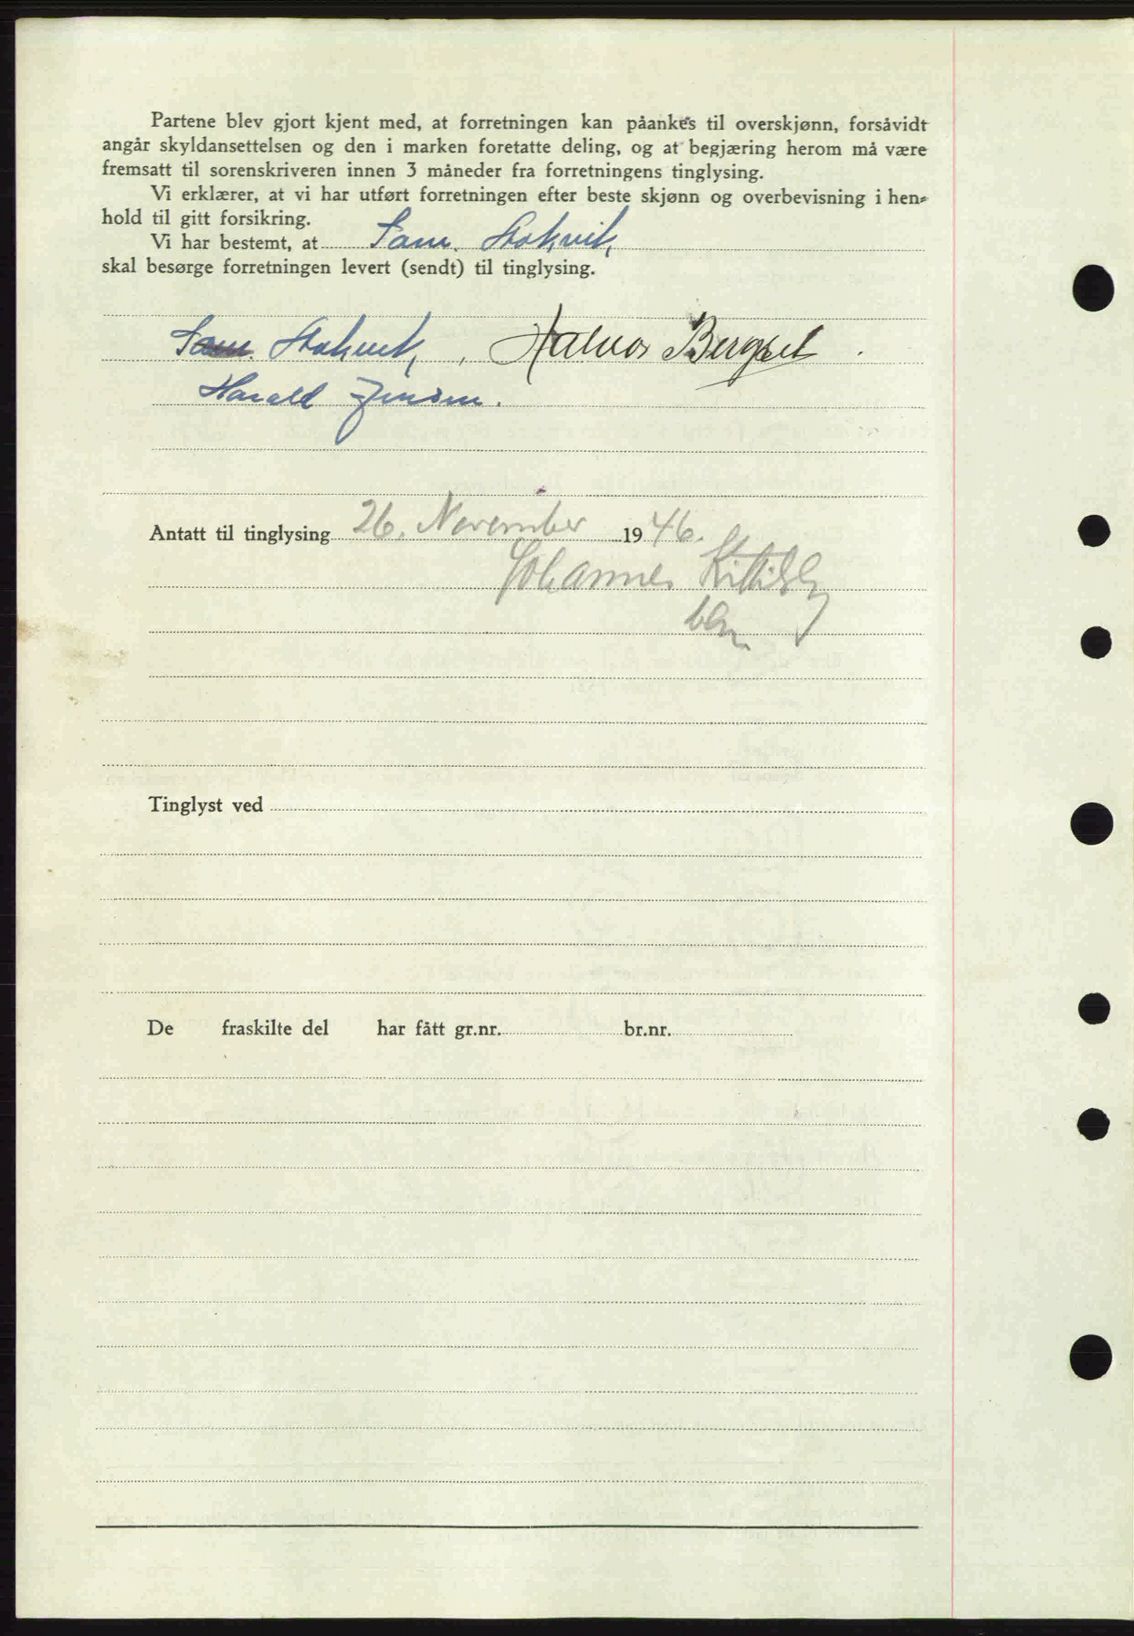 Partene blev gjort kjent med, at forretningen kan påankes til overskjønn, forsåvidt
angår skyldansettelsen og den i marken foretatte deling, og at begjæring herom må være
fremsatt til sorenskriveren innen 3 måneder fra forretningens tinglysing.
Vi erklærer, at vi har utført forretningen efter beste skjønn og overbevisning i hen-
hold til gitt forsikring.
Vi har bestemt, at Sam. Stokvik,
skal besørge forretningen levert (sendt) til tinglysing.
Sam. Stokvik, , Halvor Bergset .
Harald Jensen.
Antatt til tinglysing 26. November 1946.
Johannes
Tinglyst ved
De fraskilte del har fått gr.nr. br.nr.